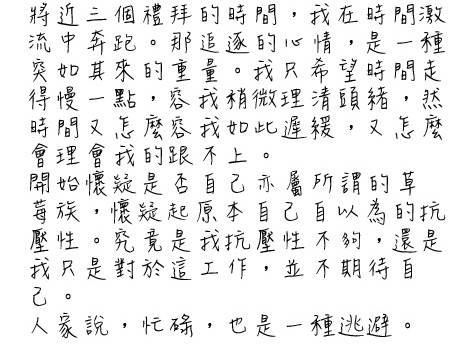 將近三個禮拜的時間，我在時間激
流中奔跑。那追逐的心情，是一種
突如其來的重量。我只希望時間走
得慢一點，容我稍微理清頭緒，然
時間又怎麼容我如此遲緩，又怎麼
會理會我的跟不上。
開始懷疑是否自己亦屬所謂的草
莓族，懷疑起原本自己自以為的抗
壓性。究竟是我抗壓性不夠，還是
我只是對於這工作，並不期待自
己。
人家說，忙碌，也是一種逃避。